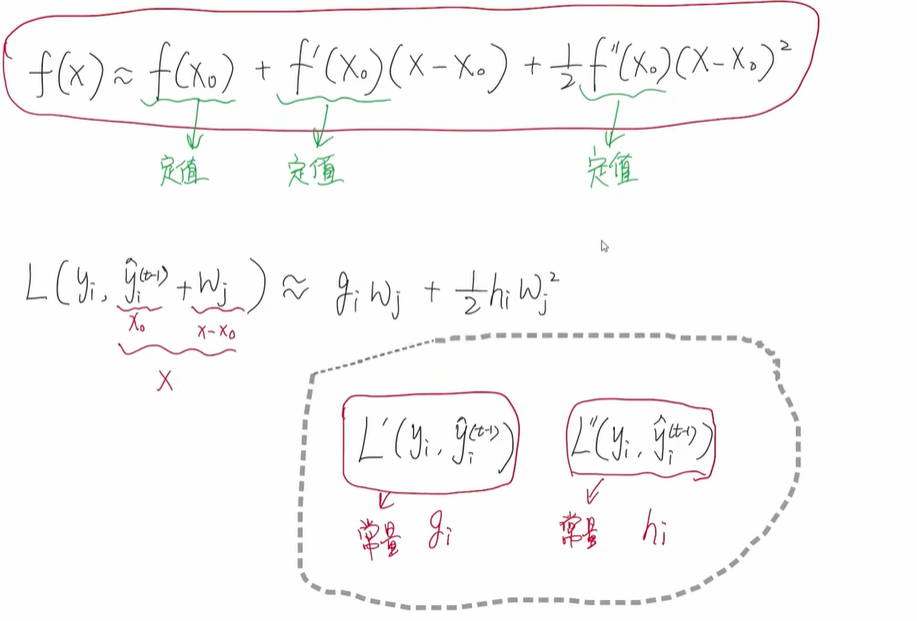 f(x) ≈ f(x₀) + f'(x₀)(x-x₀) + ½f''(x₀)(x-x₀)²
定值 定值 定值
L(yᵢ, ŷᵢ⁽ᵗ⁻¹⁾ + wⱼ) ≈ gᵢwⱼ + ½hᵢwⱼ²
x₀ x-x₀
x
L'(yᵢ, ŷᵢ⁽ᵗ⁻¹⁾) L''(yᵢ, ŷᵢ⁽ᵗ⁻¹⁾)
常量 gᵢ 常量 hᵢ